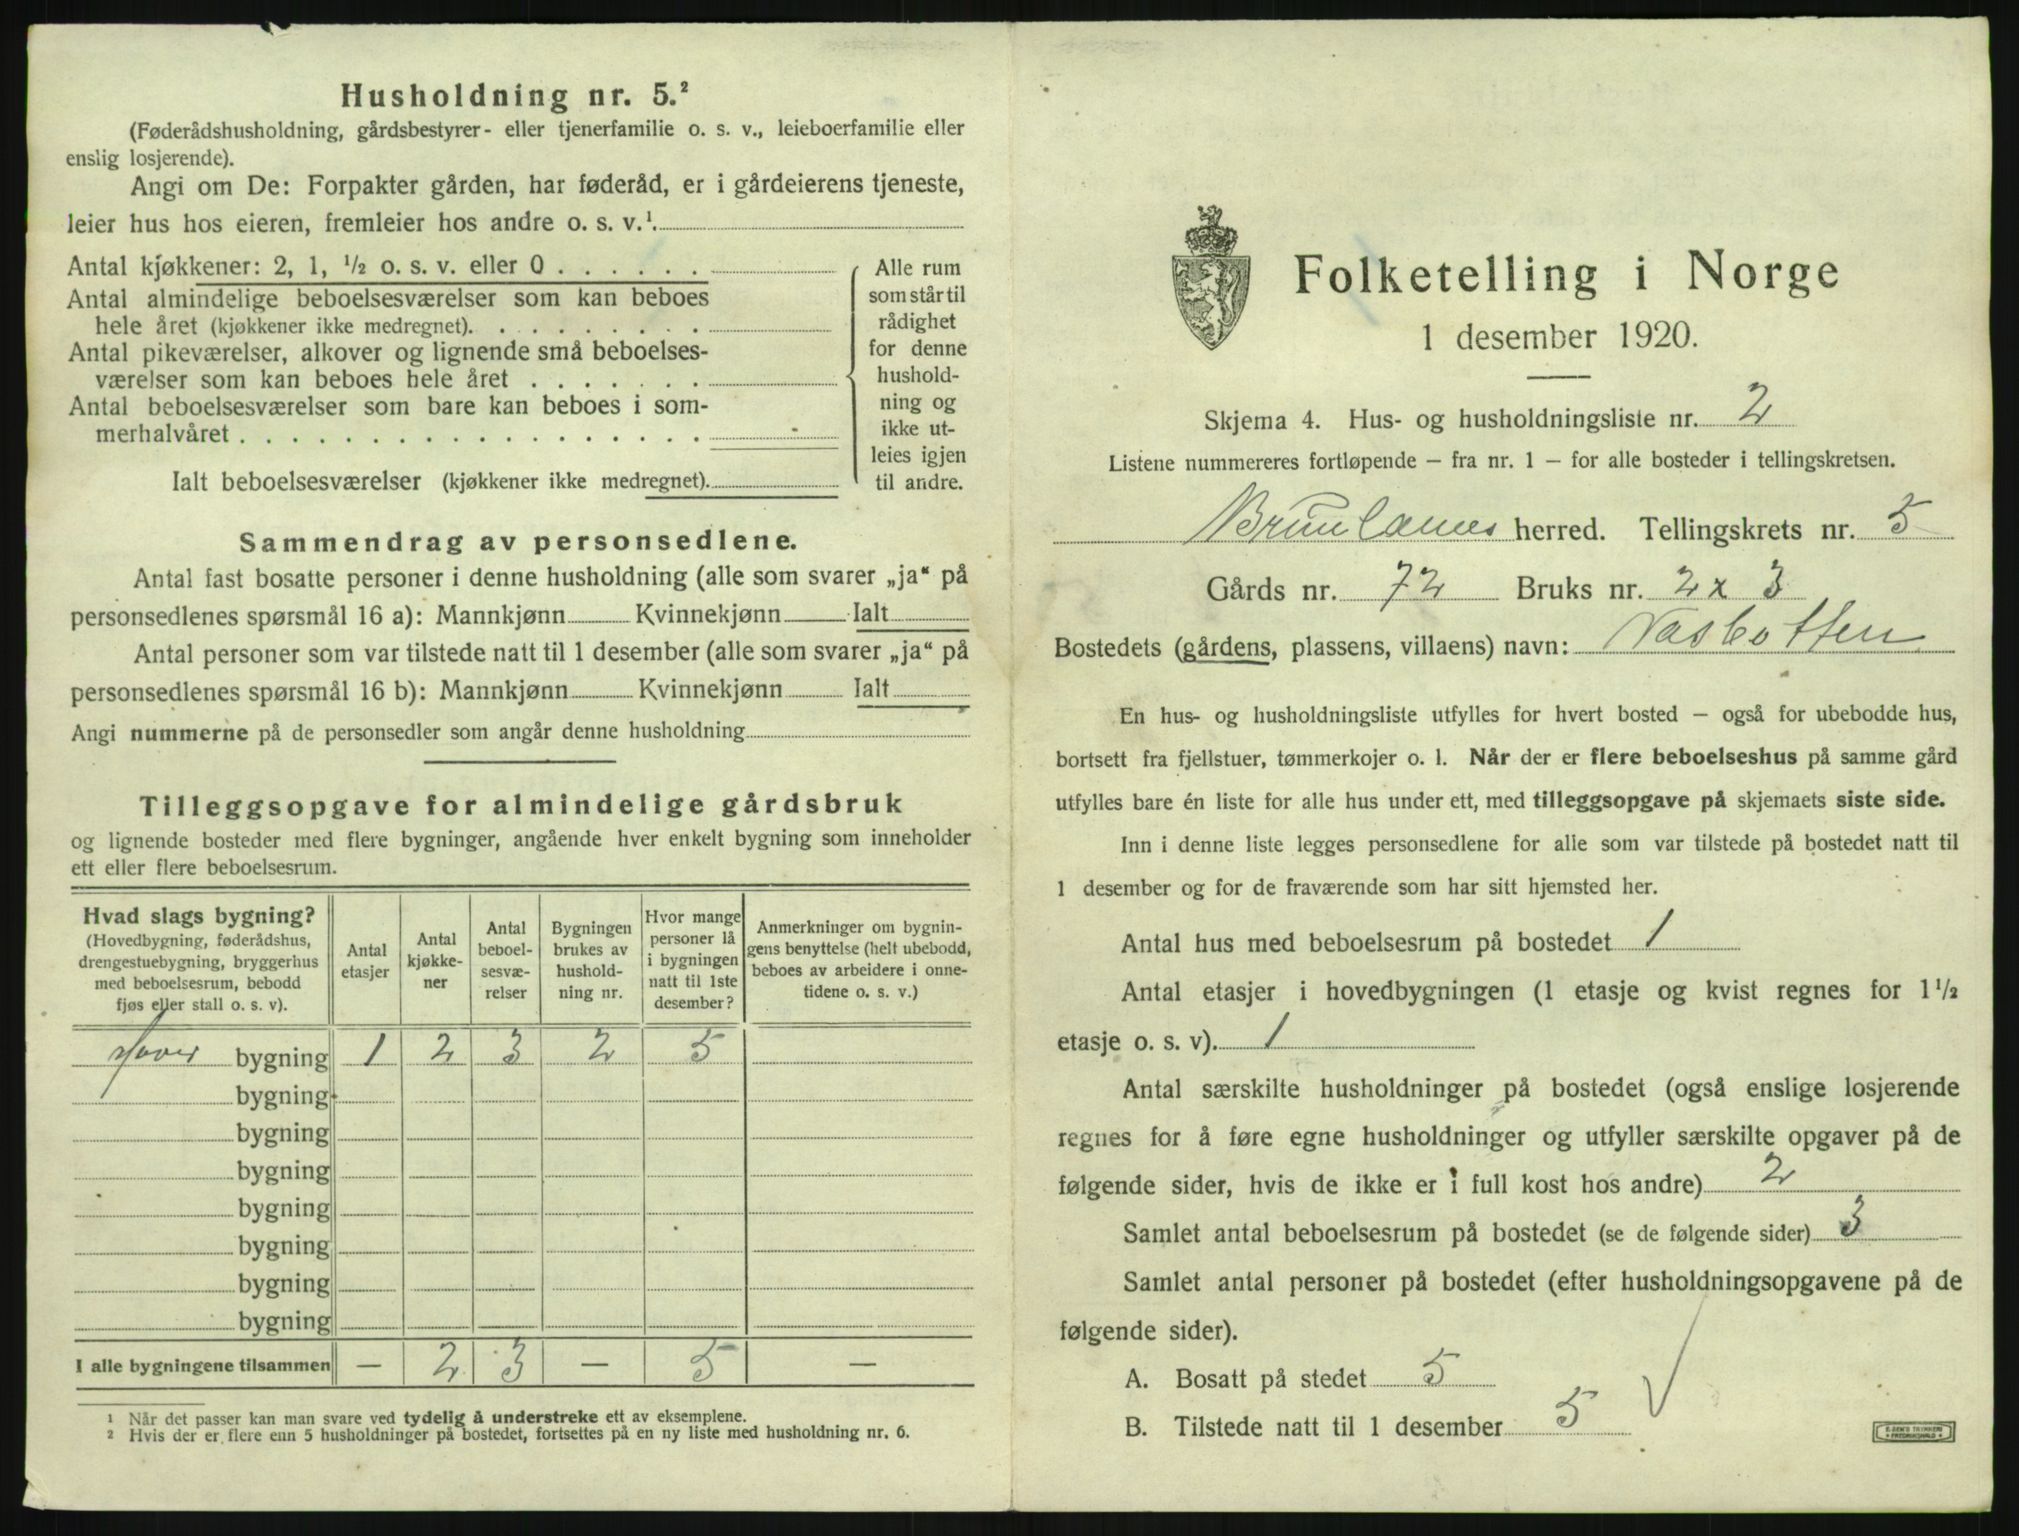 Husholdning nr. 5.²
(Føderådshusholdning, gårdsbestyrer- eller tjenerfamilie o. s. v., leieboerfamilie eller
enslig losjerende).
Angi om De: Forpakter gården, har føderåd, er i gårdeierens tjeneste,
leier hus hos eieren, fremleier hos andre o. s. v.¹
Antal kjøkkener: 2, 1, ½ o. s. v. eller 0 . . . . . .
Antal almindelige beboelsesværelser som kan beboes
hele året (kjøkkener ikke medregnet). . . . . . . . .
Antal pikeværelser, alkover og lignende små beboelses-
værelser som kan beboes hele året . . . . . . .
Antal beboelsesværelser som bare kan beboes i som-
merhalvåret . . . . . . . . . . . . . . . . . .
Ialt beboelsesværelser (kjøkkener ikke medregnet).
Alle rum
som står til
rådighet
for denne
hushold-
ning og
ikke ut-
leies igjen
til andre.
Sammendrag av personsedlene.
Antal fast bosatte personer i denne husholdning (alle som svarer „ja“ på
personsedlenes spørsmål 16 a): Mannkjønn Kvinnekjønn Ialt
Antal personer som var tilstede natt til 1 desember (alle som svarer „ja“ på
personsedlenes spørsmål 16 b): Mannkjønn Kvinnekjønn Ialt
Angi nummerne på de personsedler som angår denne husholdning
Tilleggsopgave for almindelige gårdsbruk
og lignende bosteder med flere bygninger, angående hver enkelt bygning som inneholder
ett eller flere beboelsesrum.
Hvad slags bygning?
(Hovedbygning, føderådshus,
drengestuebygning, bryggerhus
med beboelsesrum, bebodd
fjøs eller stall o. s. v).
Antal
etasjer
Antal
kjøkke-
ner
Antal
beboel-
sesvæ-
relser
Bygningen
brukes av
hushold-
ning nr.
Hvor mange
personer lå
i bygningen
natt til 1ste
desember?
Anmerkninger om bygnin-
gens benyttelse (helt ubebodd,
beboes av arbeidere i onne-
tidene o. s. v.)
bygning 1 2 3 2 5
bygning
bygning
bygning
bygning
bygning
bygning
bygning
I alle bygningene tilsammen — 2 3 — 5 —
¹ Når det passer kan man svare ved tydelig å understreke ett av eksemplene.
² Hvis der er flere enn 5 husholdninger på bostedet, fortsettes på en ny liste med husholdning nr. 6.
Folketelling i Norge
1 desember 1920.
Skjema 4. Hus- og husholdningsliste nr. 2
Listene nummereres fortløpende – fra nr. 1 – for alle bosteder i tellingskretsen.
Brunlanes herred. Tellingskrets nr. 5
Gårds nr. 72 Bruks nr. 2 x 3
Bostedets (gårdens, plassens, villaens) navn: Vasbotten
En hus- og husholdningsliste utfylles for hvert bosted – også for ubebodde hus,
bortsett fra fjellstuer, tømmerkojer o. l. Når der er flere beboelseshus på samme gård
utfylles bare én liste for alle hus under ett, med tilleggsopgave på skjemaets siste side.
Inn i denne liste legges personsedlene for alle som var tilstede på bostedet natt til
1 desember og for de fraværende som har sitt hjemsted her.
Antal hus med beboelsesrum på bostedet 1
Antal etasjer i hovedbygningen (1 etasje og kvist regnes for 1½
etasje o. s. v). 1
Antal særskilte husholdninger på bostedet (også enslige losjerende
regnes for å føre egne husholdninger og utfyller særskilte opgaver på de
følgende sider, hvis de ikke er i full kost hos andre) 2
Samlet antal beboelsesrum på bostedet (se de følgende sider) 3
Samlet antal personer på bostedet (efter husholdningsopgavene på de
følgende sider).
A. Bosatt på stedet 5
B. Tilstede natt til 1 desember 5